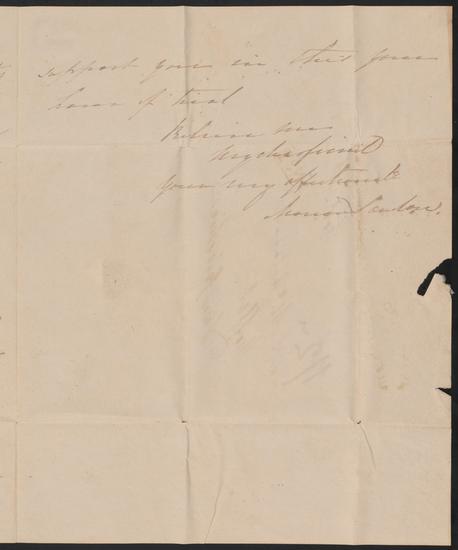 support you in this your
hour of trial
Believe me
My dear friend
Yours very affectionate